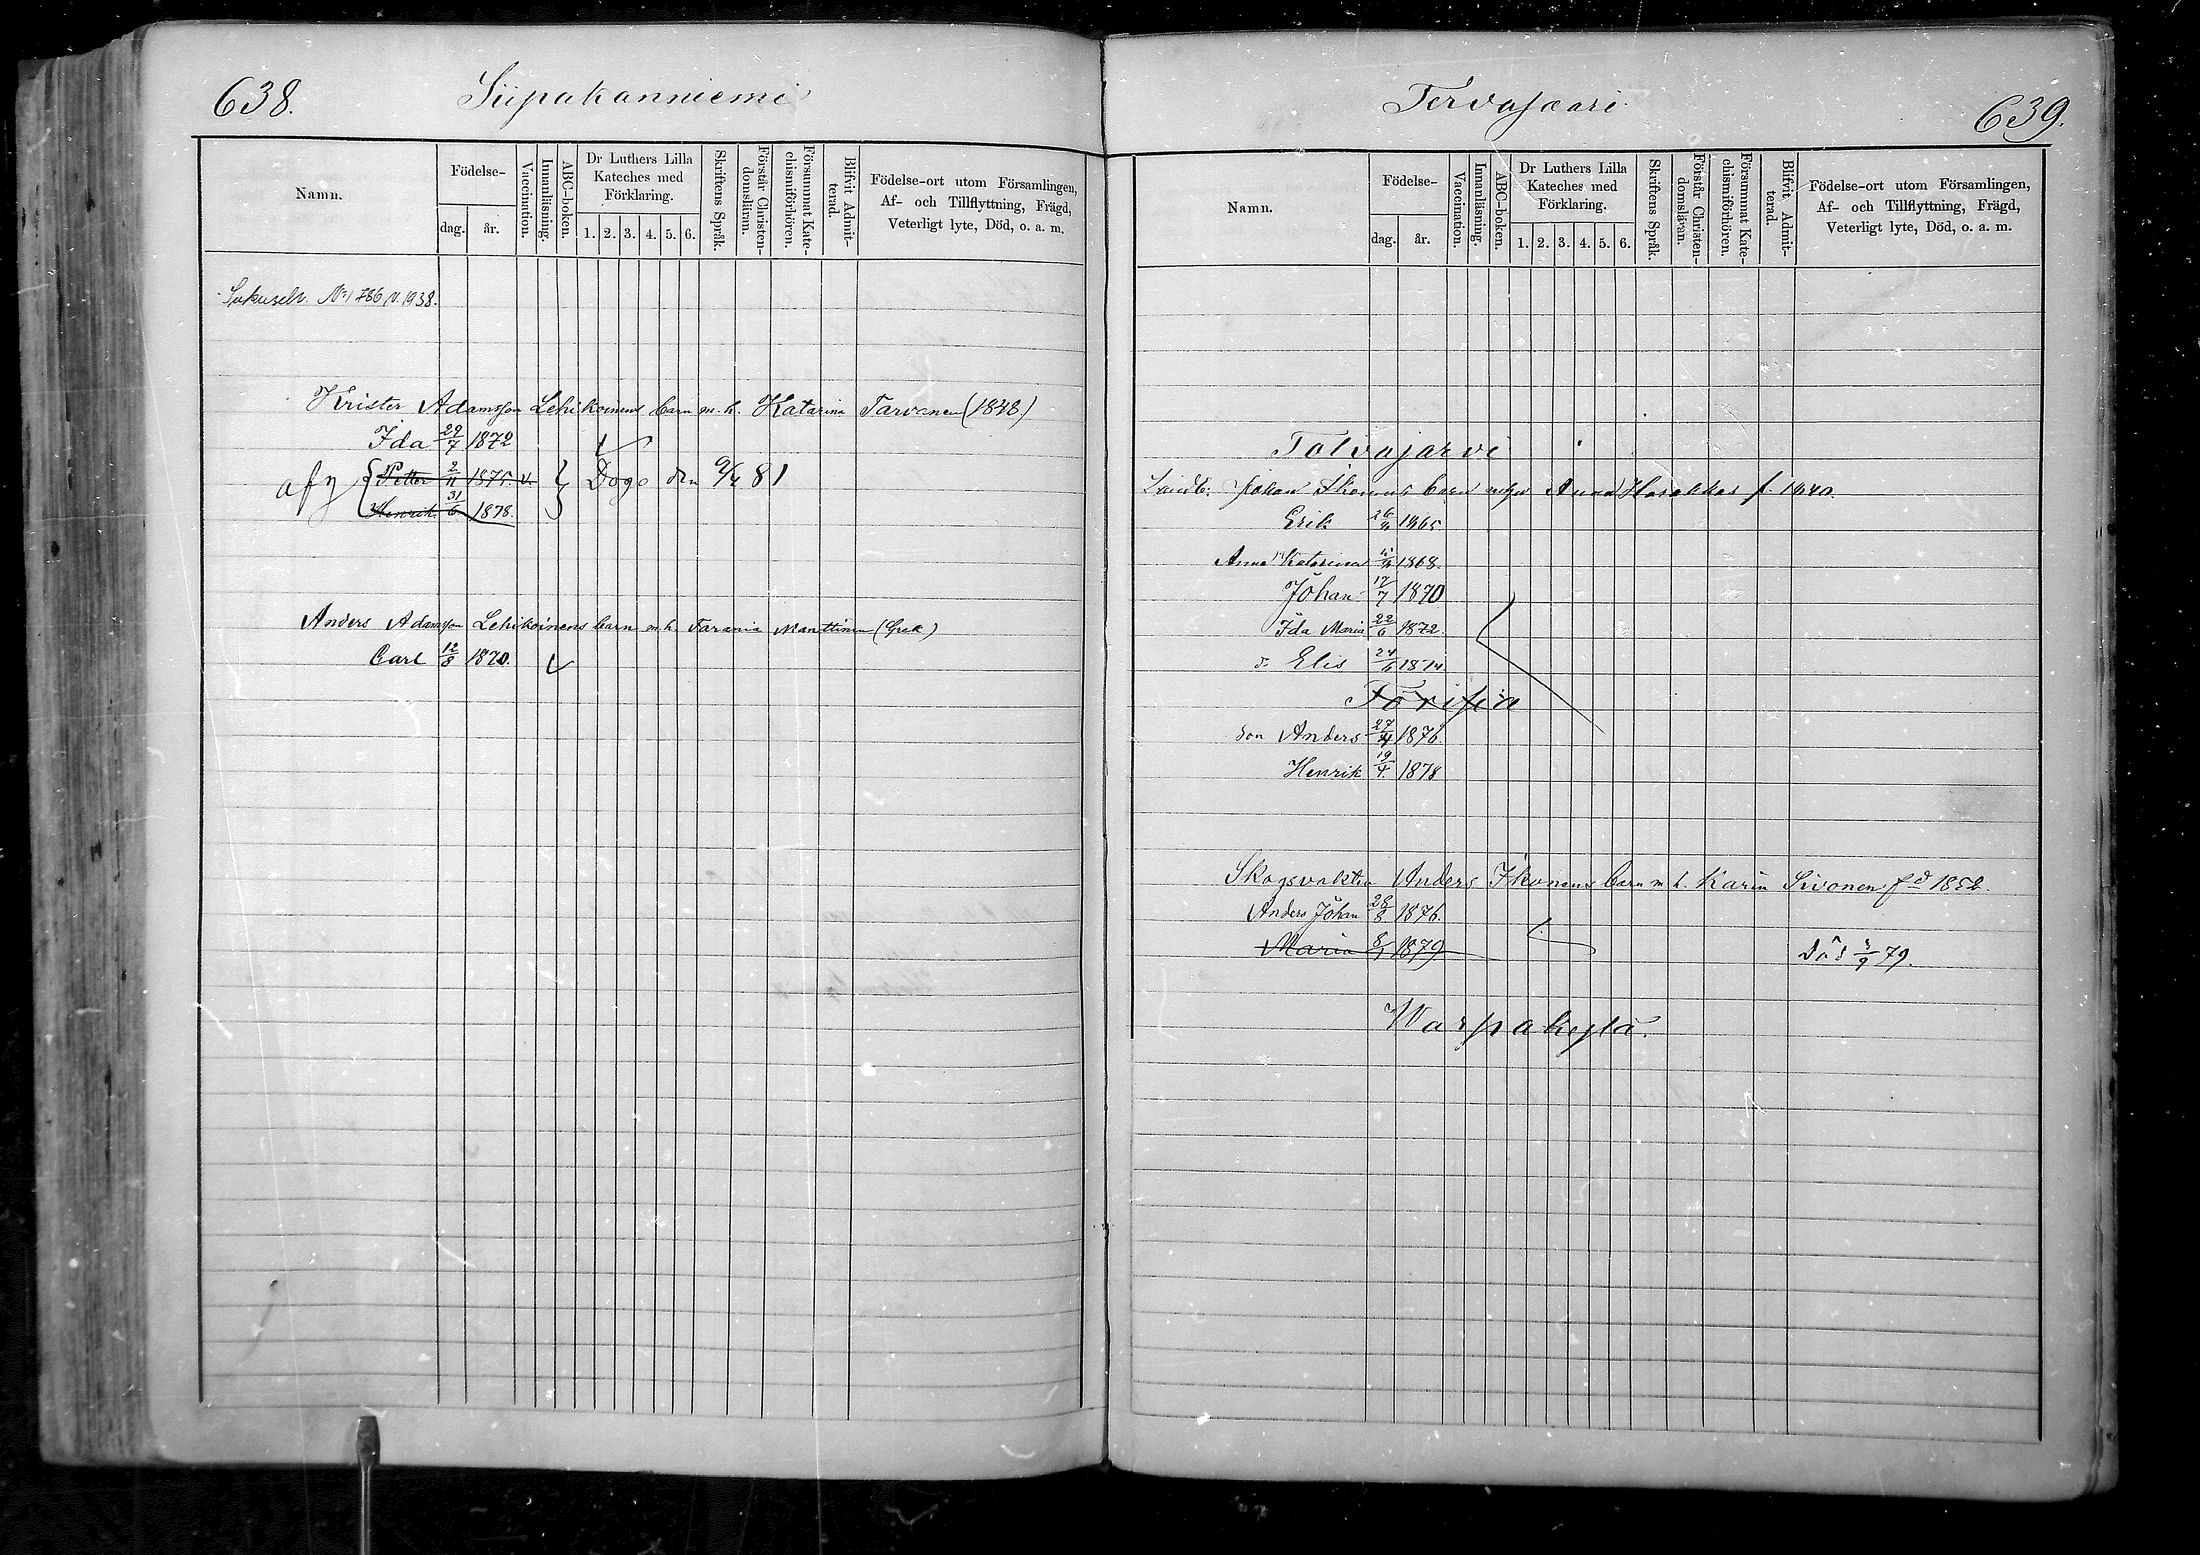 638.
Siipakanniemi
Namn.
Födelse-
dag.
år.
Vaccination.
Innanläsning.
ABC-boken.
Dr Luthers Lilla
Kateches med
Förklaring.
1. 2. 3. 4. 5. 6.
Skriftens Språk.
Förstår Christen-
domsläran.
Försummat Kate-
chismiförhören.
Blifvit Admit-
terad.
Födelse-ort utom Församlingen,
Af- och Tillflyttning, Frägd,
Veterligt lyte, Död, o. a. m.
Sukuselv. No 1786 v. 1938.
Krister Adamsson Lehikoinens barn m. h. Katarina Tarvonen (1848)
Ida 29/7 1872
Petter 2/11 1875. v.
Henrik 31/6 1878.
Anders Adamsson Lehikoinens barn m. h. Manttinen (Grek)
Carl 12/8 1870.
Tervasaari
639.
Namn.
Födelse-
dag.
år.
Vaccination.
Innanläsning.
ABC-boken.
Dr Luthers Lilla
Kateches med
Förklaring.
1. 2. 3. 4. 5. 6.
Skriftens Språk.
Förstår Christen-
domsläran.
Försummat Kate-
chismiförhören.
Blifvit Admit-
terad.
Födelse-ort utom Församlingen,
Af- och Tillflyttning, Frägd,
Veterligt lyte, Död, o. a. m.
Tolvajarvi
Johan Ikonens barn Anna f. 1840.
Erik 1865
Anna Katarina 1868.
Johan 17/7 1870
Ida Maria 22/6 1872.
d. Elis 24/6 1874
son Anders 1876.
Henrik 19/4. 1878
Skogsvakten Anders Ikonens barn m. h. Karin Sivonen fd 1852.
Anders Johan 28/8 1876.
Maria 8/1 1879
död 3/9 79.
Warpakylä.